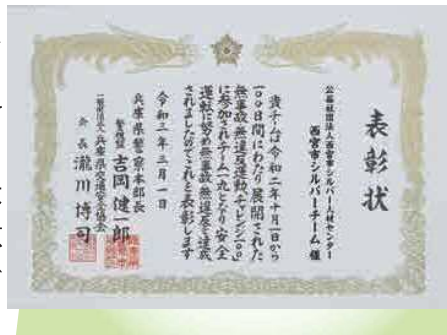 表彰状
公益社団法人西宮市シルバー人材センター
西宮市シルバーチーム 様
貴チームは令和二年十月一日から
一〇〇日間にわたり展開された
無事故無違反運動「チャレンジ一〇〇」
に参加されチーム一丸となり安全
運転に努め無事故無違反を達成
されましたのでこれを表彰します
令和三年三月一日
兵庫県警察本部長
警視監 吉岡健一郎
一般財団法人兵庫県交通安全協会
会長 瀧川博司